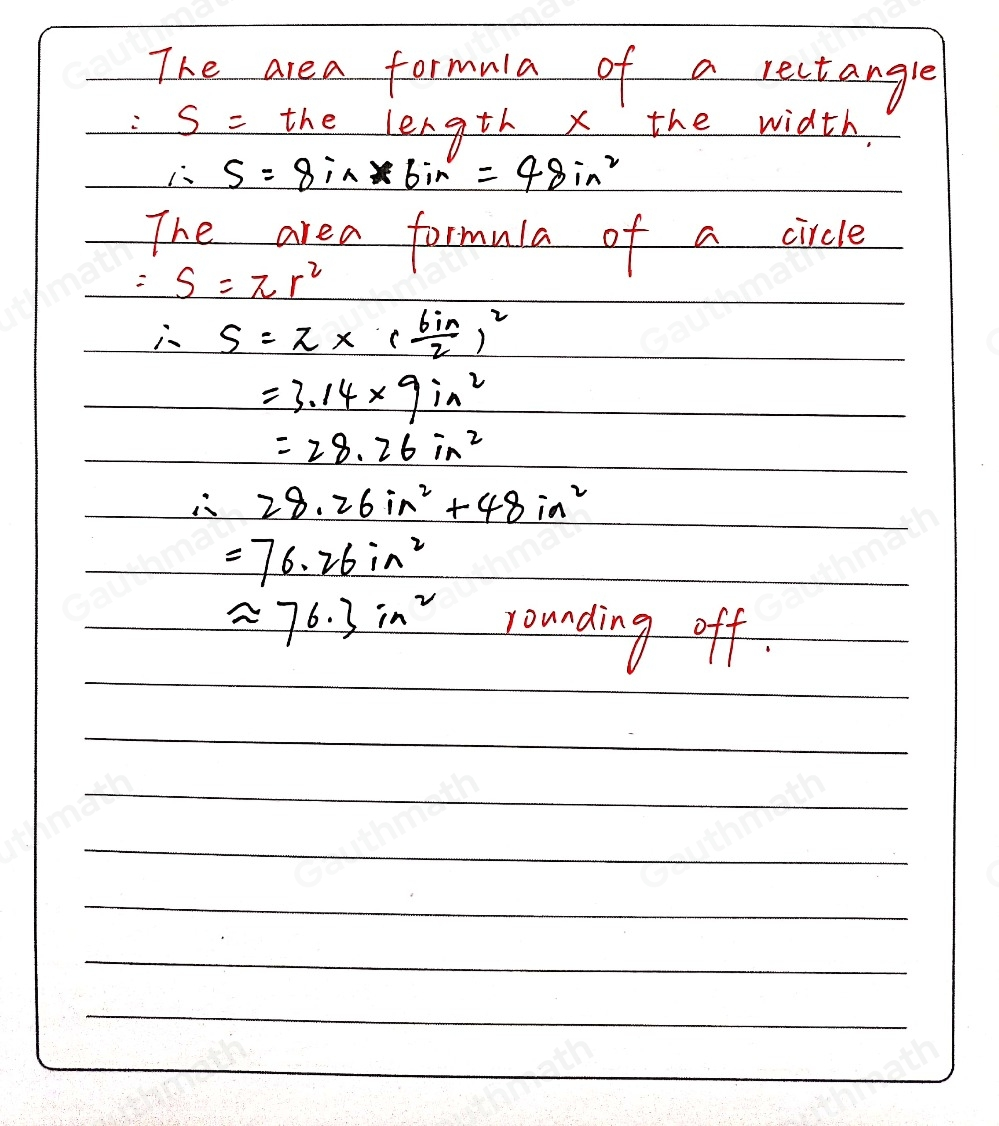 The area formula of a rectangle
: S = the length × the width.
∴ S = 8in × 6in = 48in²
The area formula of a circle
: S = πr²
∴ S = π × (6in/2)²
= 3.14 × 9in²
= 28.26 in²
∴ 28.26in² + 48in²
= 76.26in²
≈ 76.3 in² rounding off.
Gauthmath